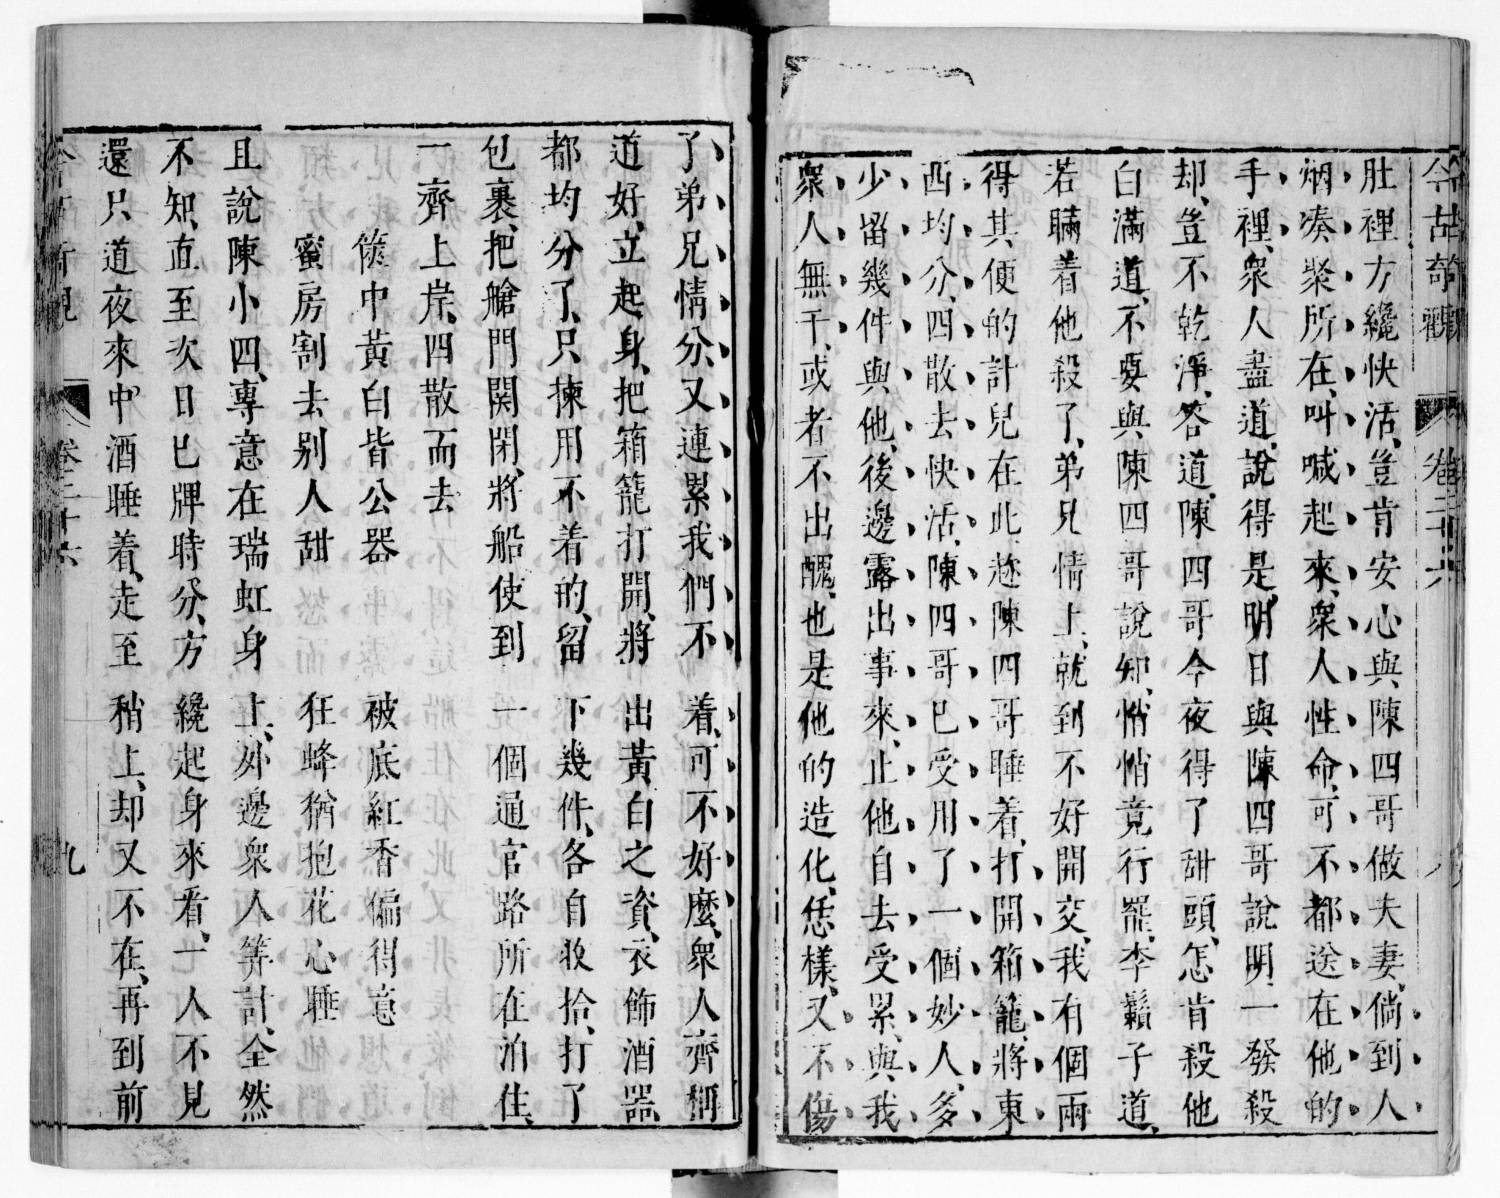 今古奇觀　卷二十六　八
肚裡方纔快活、豈肯安心與陳四哥做夫妻、倘到人
烟湊聚所在、叫喊起來、衆人性命、可不都送在他的
手裡、衆人盡道、說得是、明日與陳四哥說明、一發殺
却、豈不乾淨、答道、陳四哥今夜得了甜頭、怎肯殺他
白滿道、不要與陳四哥說知、悄悄竟行罷、李鬍子道、
若瞞着他殺了、弟兄情上、就到不好開交、我有個兩
得其便的計兒在此、趁陳四哥睡着、打開箱籠、將東
西均分、四散去快活、陳四哥已受用了一個妙人、多
少留幾件與他、後邊露出事來、止他自去受累、與我
衆人無干、或者不出醜、也是他的造化、恁樣、又不傷
了弟兄情分、又連累我們不着、可不好麼、衆人齊稱
道好、立起身、把箱籠打開、將出黃白之資、衣飾酒器、
都均分了、只揀用不着的、留下幾件、各自收拾、打了
包裹、把艙門關閉、將船使到一個通官路所在泊住、
一齊上岸、四散而去
篋中黃白皆公器　被底紅香偏得意
蜜房割去别人甜　狂蜂猶抱花心睡
且說陳小四、專意在瑞虹身上、外邊衆人等計、全然
不知、直至次日巳牌時分、方纔起身來看、一人不見
還只道夜來中酒睡着、走至稍上、却又不在、再到前
今古奇觀　卷二十六　九